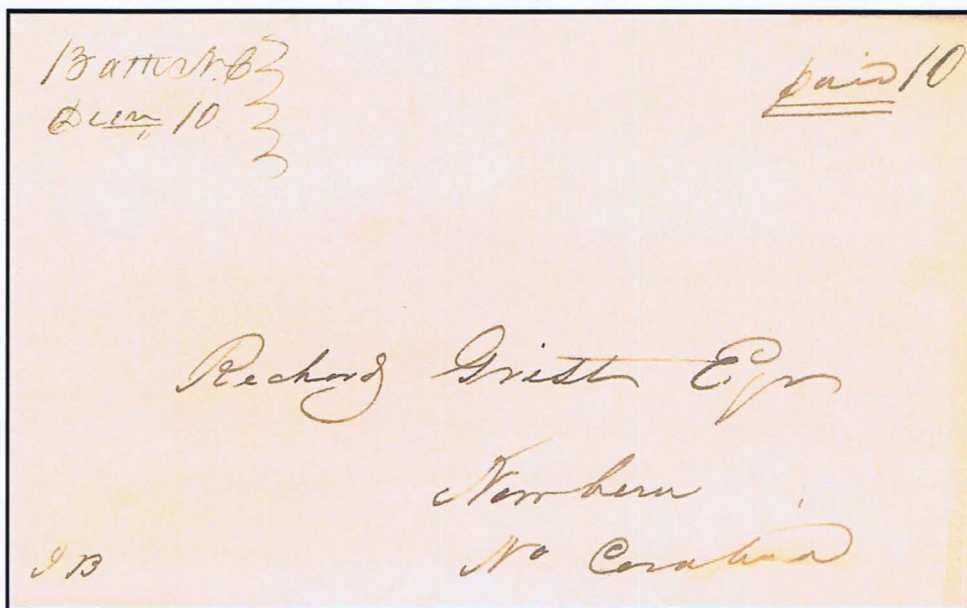 Bath N.C
Decm 10
paid 10
Richard Grist Esqr
Newbern
No Carolina
J B